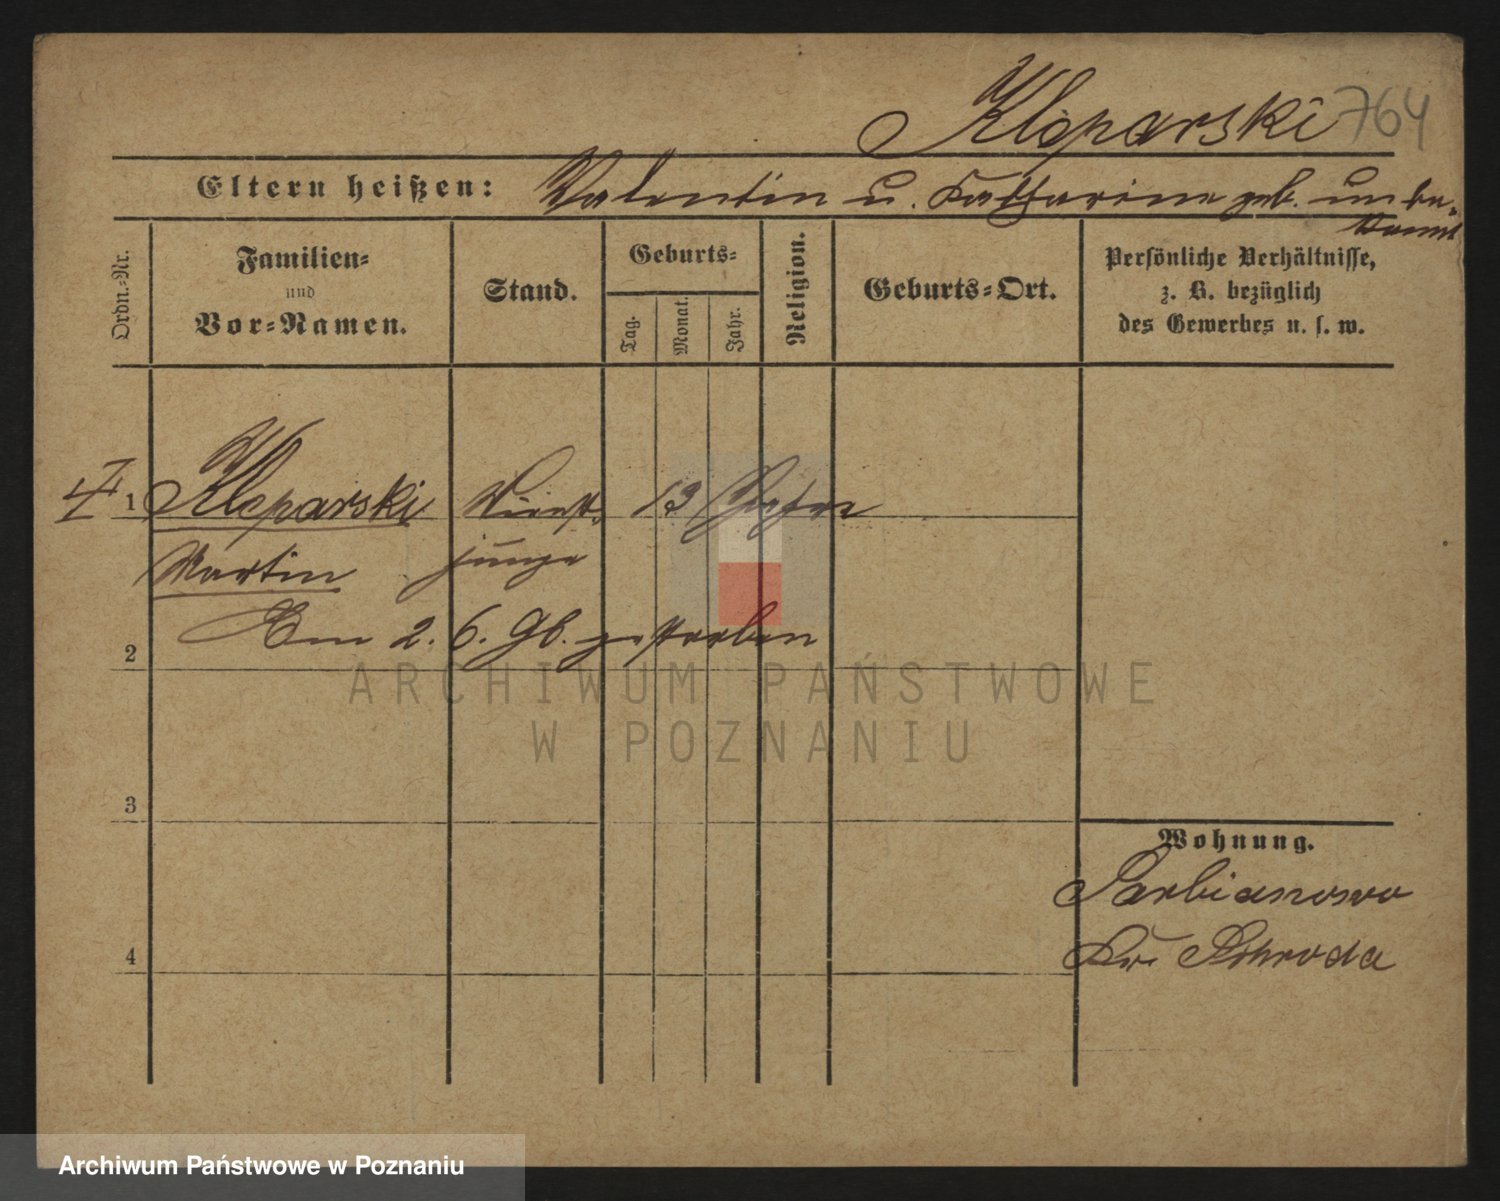 Kleparski 764
Eltern heißen: Valentin u. Katharine geb. unbe-
kannt
Ordn.-Nr.
Familien-
und
Vor-Namen.
Stand.
Geburts-
Tag.
Monat.
Jahr.
Religion.
Geburts-Ort.
Persönliche Verhältnisse,
z. B. bezüglich
des Gewerbes u. s. w.
1 Kleparski Dienst- 13 Jahre
Martin junge
Am 2. 6. 96. gestorben
2
3
4
Wohnung.
Garbianowo
Kr. Schroda
ARCHIWUM PAŃSTWOWE
W POZNANIU
Archiwum Państwowe w Poznaniu